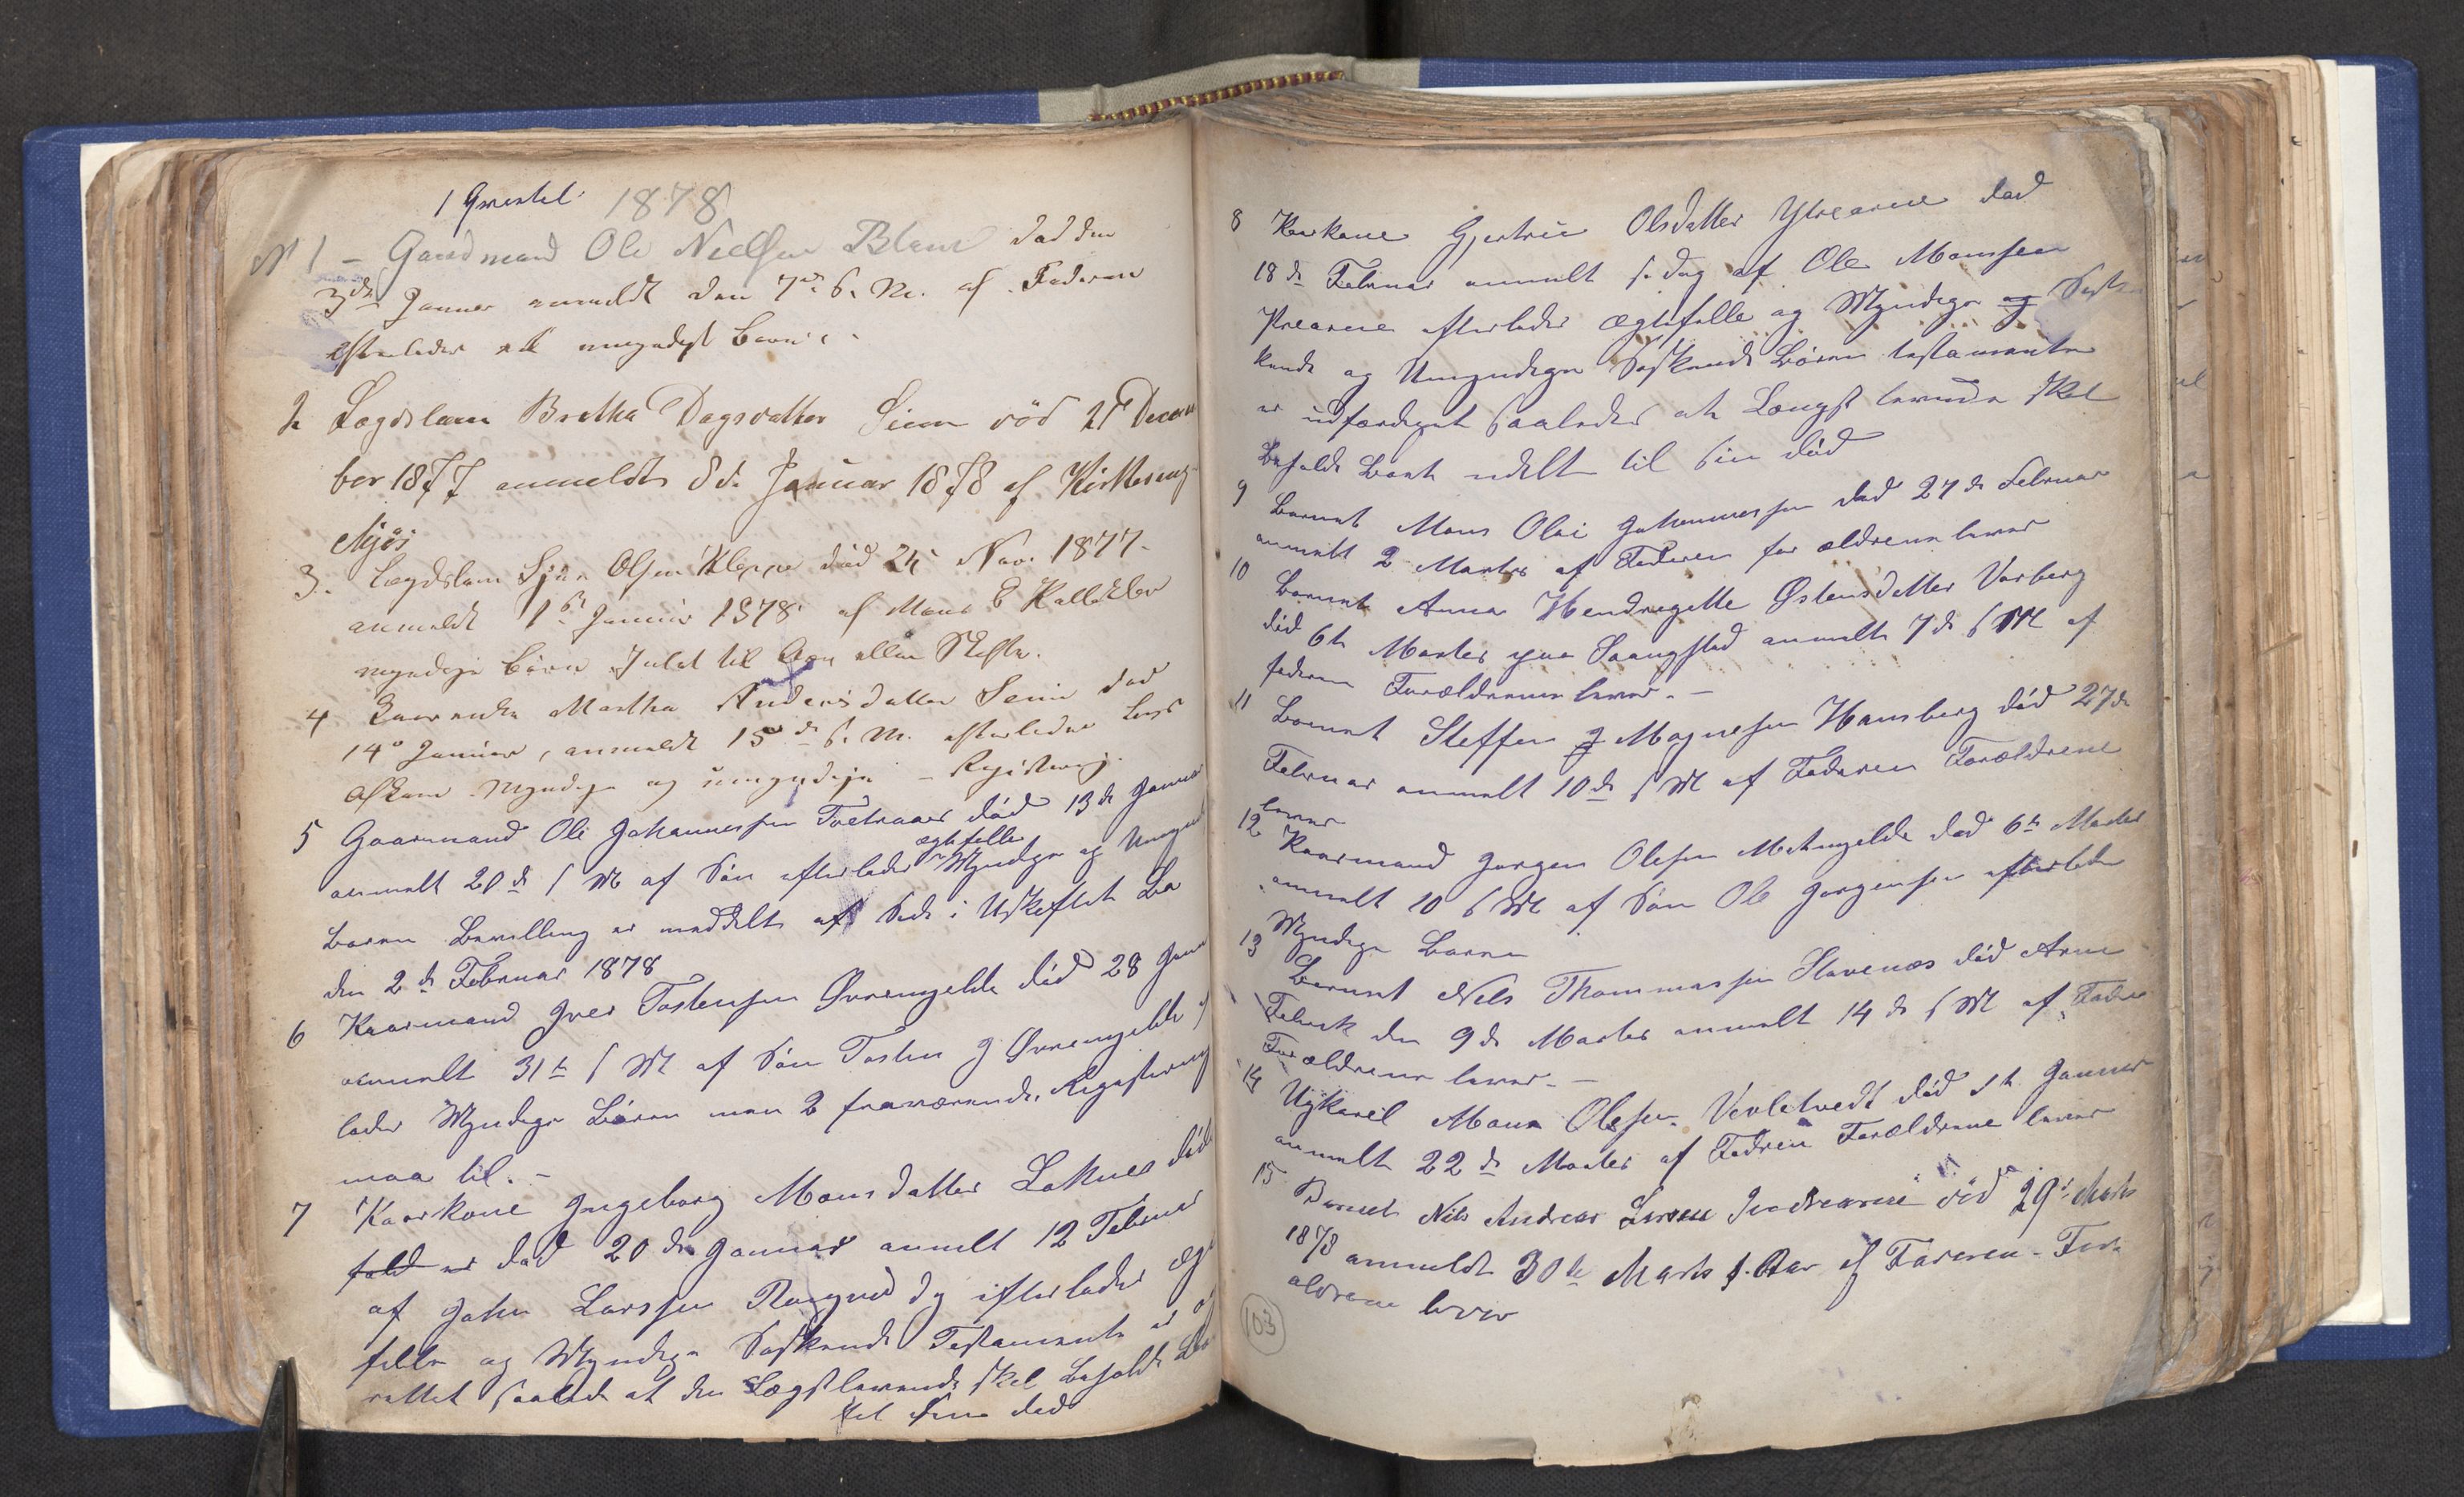 1 Qvartal 1878
N 1 – Gaardmand Ole Nielsen død den
3de Januar anmeldt den 7de s. M. af Faderen
efterlader et umyndigt barn
2 Lægdslem Bretha Dagsdatter Siem död 21 Decem
ber 1877 anmeldt 8de Januar 1878 af Kirkesang
Mjös
3. Lægdslem Sjur Olsen Kleppe död 24 Nov. 1877.
anmeldt 1ste Januar 1878 af Mons E
myndige börn Intet til Arv eller Skifte.
4 Martha Andersdatter död
14de Januar, anmeldt 15de s. M. efterlader
Afkom Myndige og umyndige – Registrering.
5 Gaarmand Ole Johannessen död 13de Januar
ægtefelle
anmelt 20de s M af Sön efterlader Myndige og Umyndi
Baaren Bevilling er meddelt at Side i Uskiftet Bo
den 2de Februar 1878
6 Kaarmand Iver Tostensen Övremjelde död 28 Janu
anmelt 31te s M af Sön Tosten I Övremjelde ef
lader Myndige Bören men 2 fraværende, Registrering
maa til. –
7 Kaarkone Ingeborg Monsdatter död
er död 20de Januar anmelt 12 Februar
af John Larssen efterlader ægte
felle og Myndige Söskende Testamente er op
rettet saaled at den Lægstlevende skal Beholde Bo
tel sin död
8 Kaarkone Gjertrui Olsdatter Ytrearne död
18de Februar anmelt s. dag af Ole Monssen
Ytrearne efterlader Ægtefelle og Myndige og Sös
kende og Umyndige Söskende Bören testamente
er udfærdiget saaledes at Længst levende skal
Beholde Boet udelt til sin död
9 Barnet Mons Olai Johannessen död 27de Februar
anmelt 2 Martes af Faderen for ældrene lever
10 Barnet Anna Hendregette Östensdatter Varberg
död 6te Martes paa anmelt 7de s M af
faderen Forældrene lever. –
11 Barnet Steffen Magnesen död 27de
Februar anmelt 10de s M af Faderen Forældrene
lever
12 Kaarmand Jorgen Olesen död 6te Martes
anmelt 10 s M af Sön Ole Jorgensen efterlader
Myndige Baaren
13 Barnet Nels Thommassen Stavenæs död Arne
Fabrik den 9de Martes anmelt 14de s M af Fader
Forældrene lever. –
14 Ugkarel Mons Olesen död 1te Januar
anmelt 22de Martes af Fadren Forældrene lever
15 Barnet Nils Andreas Indrearne död 29de Marts
1878 anmeldt 30te Marts s. Aar af Faderen – For
ældrene lever
103